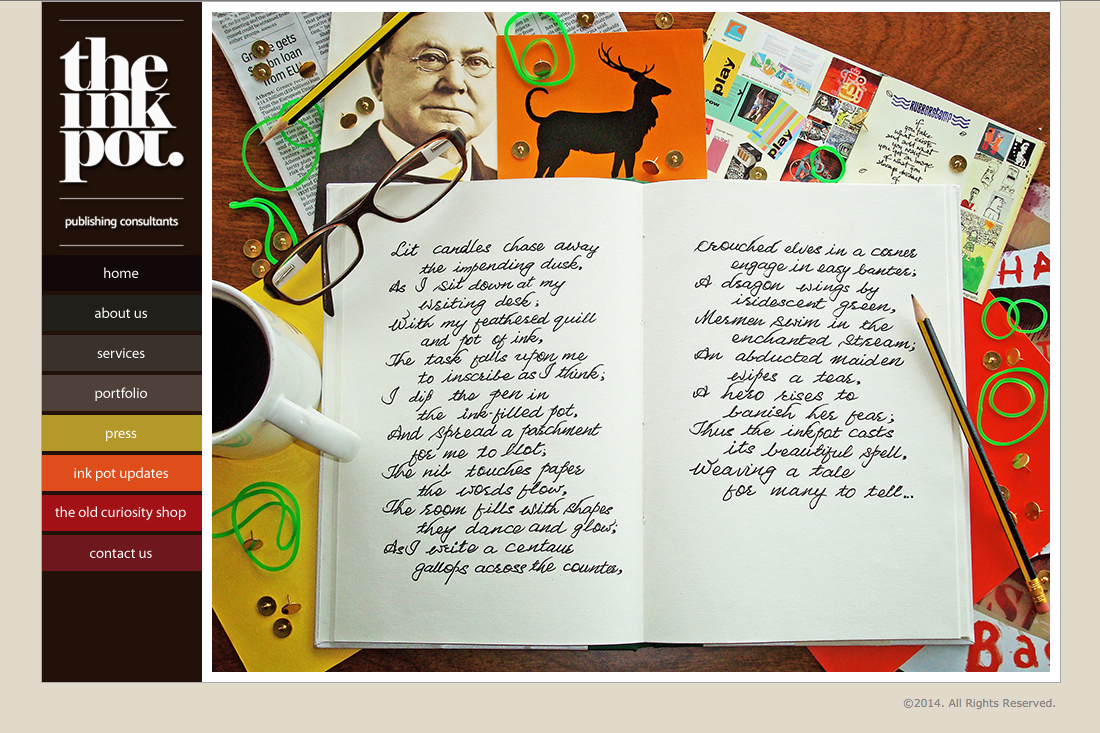 the
ink
pot.
publishing consultants
home
about us
services
portfolio
press
ink pot updates
the old curiosity shop
contact us
Greece gets
bn loan
from EU
Athens:
play
row
play
RUBBERSTAMP
HA
Ba
Lit candles chase away
the impending dusk,
As I sit down at my
writing desk;
With my feathered quill
and pot of ink,
The task falls upon me
to inscribe as I think;
I dip the pen in
the ink-filled pot,
And spread a parchment
for me to blot;
The nib touches paper
the words flow,
The room fills with shapes
they dance and glow;
As I write a centaur
gallops across the counter,
Crouched elves in a corner
engage in easy banter;
A dragon wings by
iridescent green,
Mermen swim in the
enchanted stream;
An abducted maiden
wipes a tear,
A hero rises to
banish her fear;
Thus the inkpot casts
its beautiful spell,
Weaving a tale
for many to tell...
©2014. All Rights Reserved.